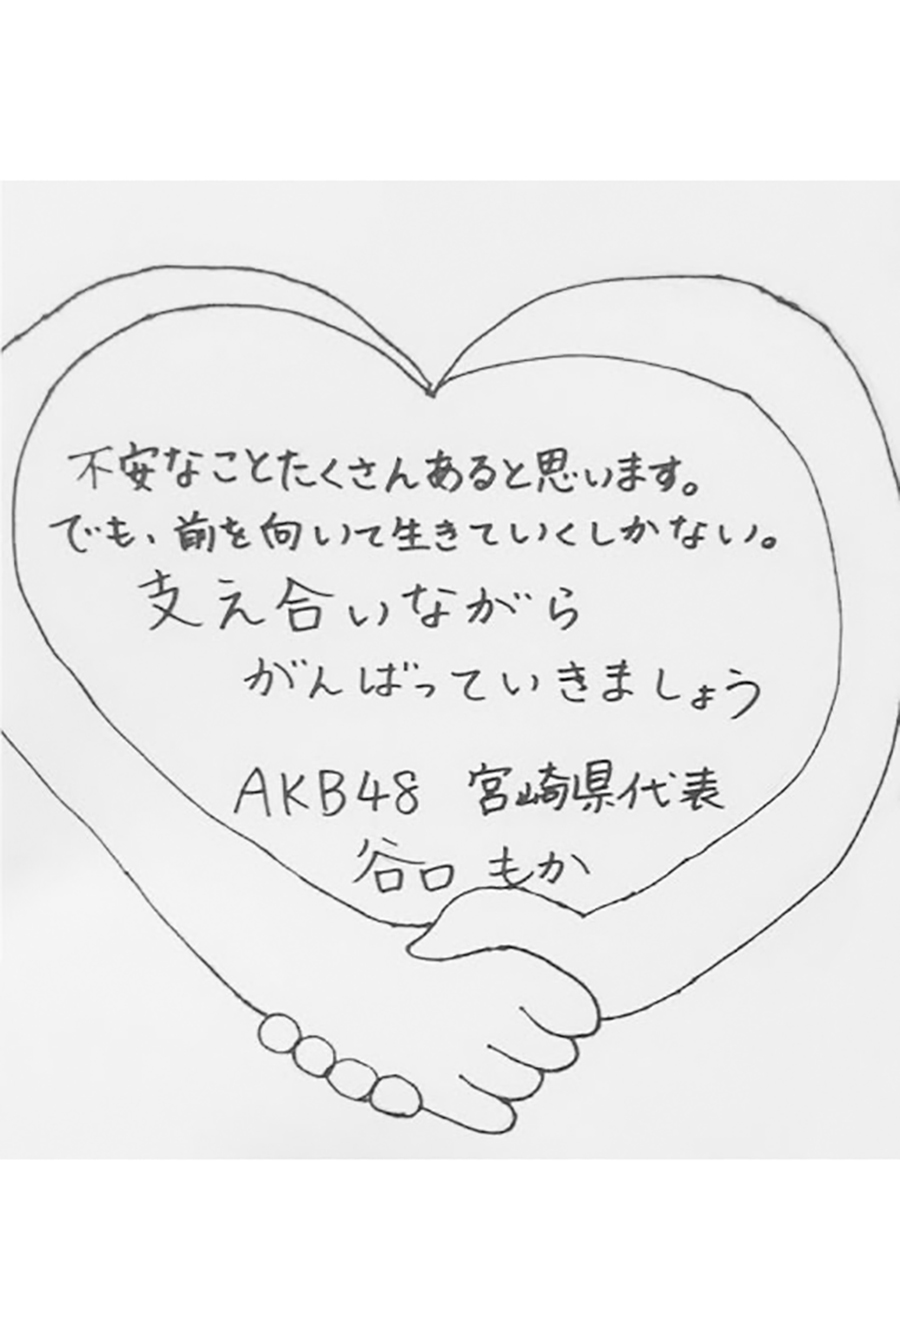 不安なことたくさんあると思います。
でも、前を向いて生きていくしかない。
支え合いながら
がんばっていきましょう
AKB48 宮崎県代表
谷口 もか